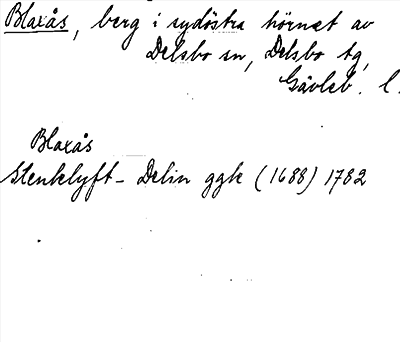 Blaxås, berg i sydöstra hörnet av
Delsbo sn, Delsbo tg,
Gävleb. l.
Blaxås
Stenklyft - Delin ggk (1688) 1782